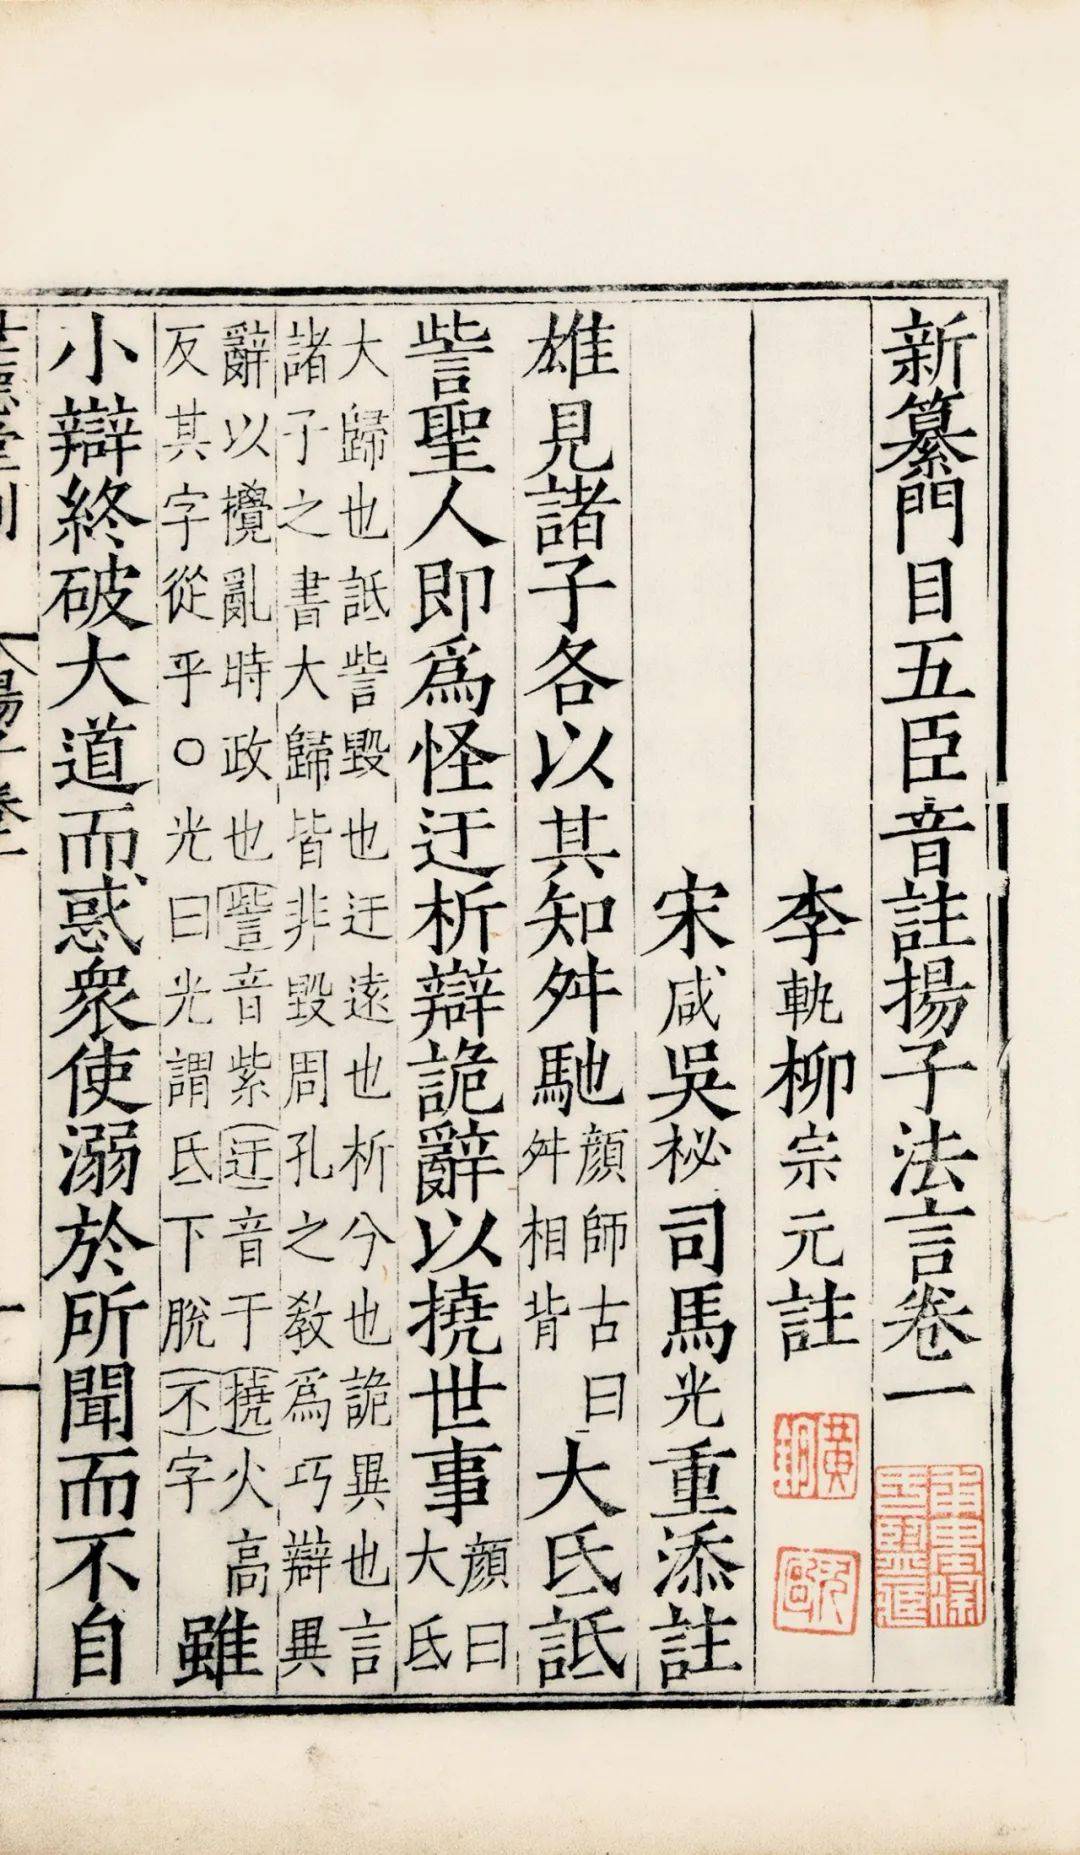 新纂門目五臣音註揚子法言卷一
李軌柳宗元註
宋咸吳祕司馬光重添註
雄見諸子各以其知舛馳顏師古曰舛相背大氐詆
訾聖人即爲怪迂析辯詭辭以撓世事顏曰大氐
大歸也詆訾毀也迂遠也析分也詭異也言
諸子之書大歸皆非毀周孔之教爲巧辯異
辭以攪亂時政也訾音紫迂音于撓火高
反其字從乎○光曰光謂氐下脫不字雖
小辯終破大道而惑衆使溺於所聞而不自
世德堂刊